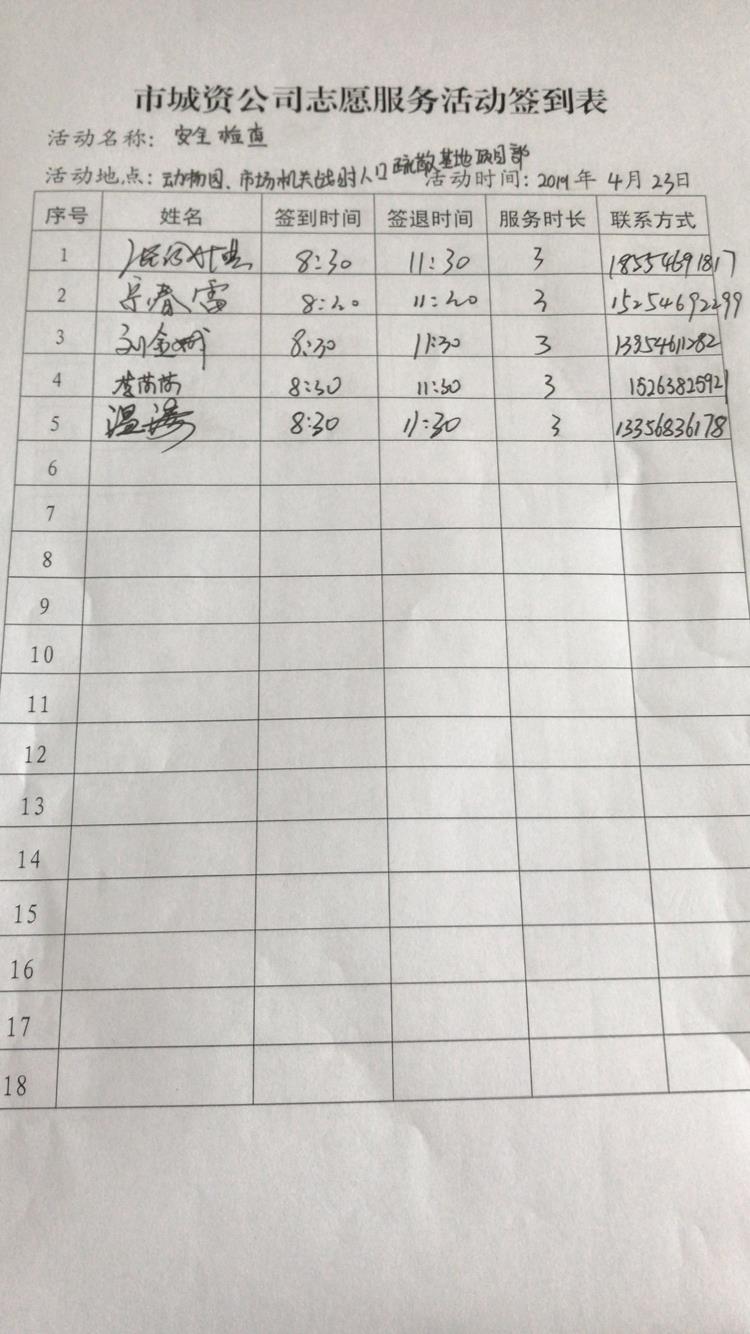 市城资公司志愿服务活动签到表
活动名称：安全检查
活动地点：动物园、市场机关战时人口疏散基地项目部 活动时间：2019年 4月 23日
序号 姓名 签到时间 签退时间 服务时长 联系方式
1 8:30 11:30 3 18554691817
2 春雷 8:30 11:30 3 15254692299
3 刘金 8:30 11:30 3 13954611282
4 李茜茜 8:30 11:30 3 15263825921
5 温 8:30 11:30 3 13356836178
6
7
8
9
10
11
12
13
14
15
16
17
18